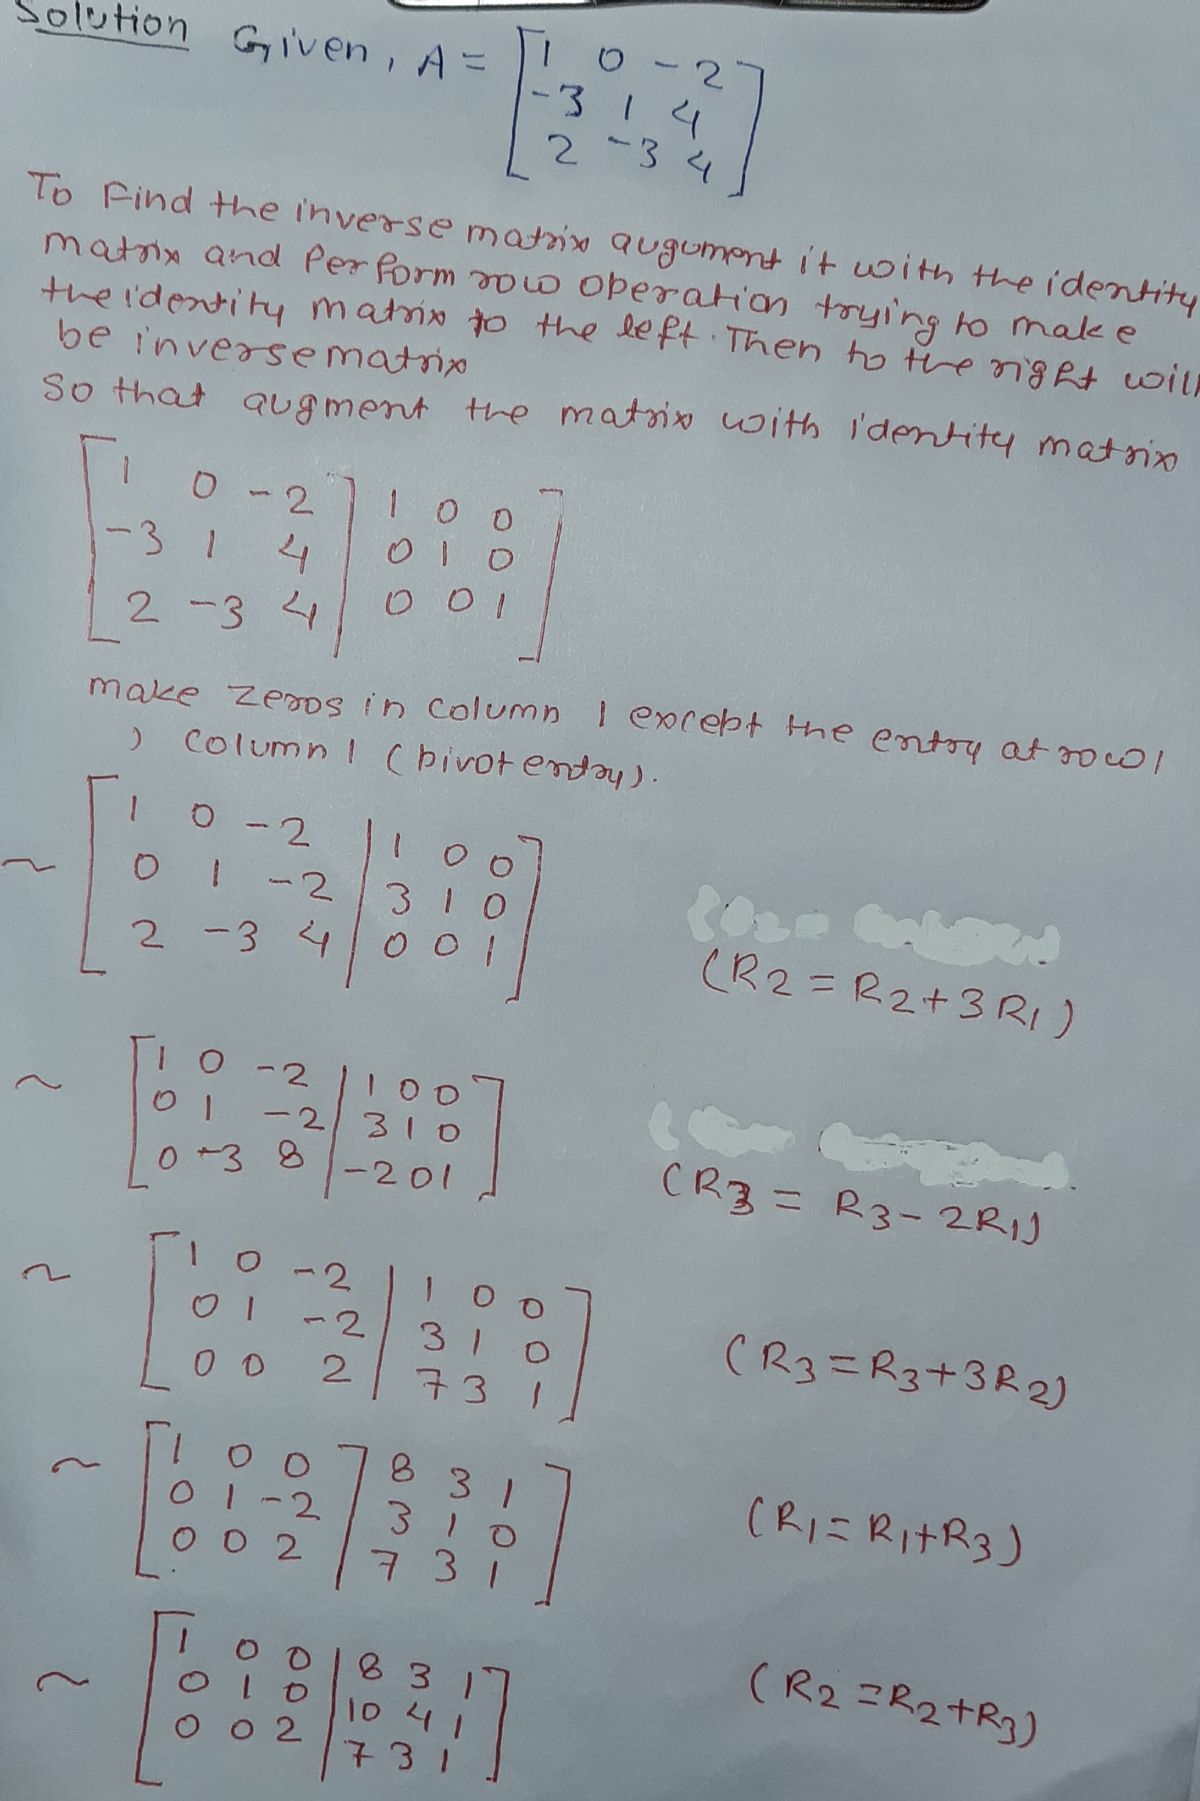 Solution Given, A = [1 0 -2
-3 1 4
2 -3 4]
To Find the inverse matrix augument it with the identity
matrix and Perform row operation trying to make
the identity matrix to the left. Then to the right will
be inverse matrix
So that augment the matrix with identity matrix
[1 0 -2 | 1 0 0
-3 1 4 | 0 1 0
2 -3 4 | 0 0 1]
make zeros in column 1 except the entry at row 1
, column 1 (pivot entry).
~ [1 0 -2 | 1 0 0
0 1 -2 | 3 1 0
2 -3 4 | 0 0 1]
(R2 = R2 + 3R1)
~ [1 0 -2 | 1 0 0
0 1 -2 | 3 1 0
0 -3 8 | -2 0 1]
(R3 = R3 - 2R1)
~ [1 0 -2 | 1 0 0
0 1 -2 | 3 1 0
0 0 2 | 7 3 1]
(R3 = R3 + 3R2)
~ [1 0 0 | 8 3 1
0 1 -2 | 3 1 0
0 0 2 | 7 3 1]
(R1 = R1 + R3)
~ [1 0 0 | 8 3 1
0 1 0 | 10 4 1
0 0 2 | 7 3 1]
(R2 = R2 + R3)